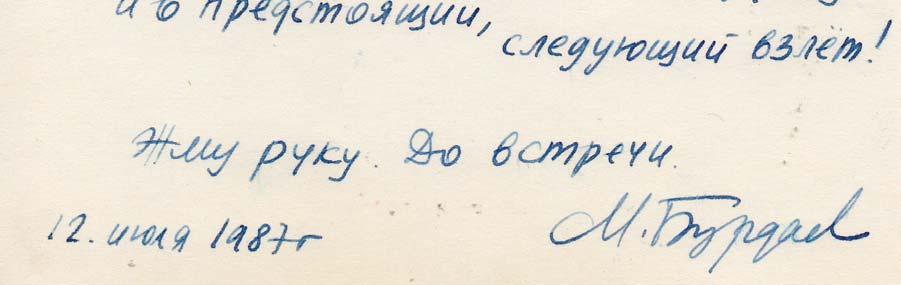 и в предстоящий,
следующий взлёт!
Жму руку. До встречи.
12. июля 1987г
М. Бурдаев